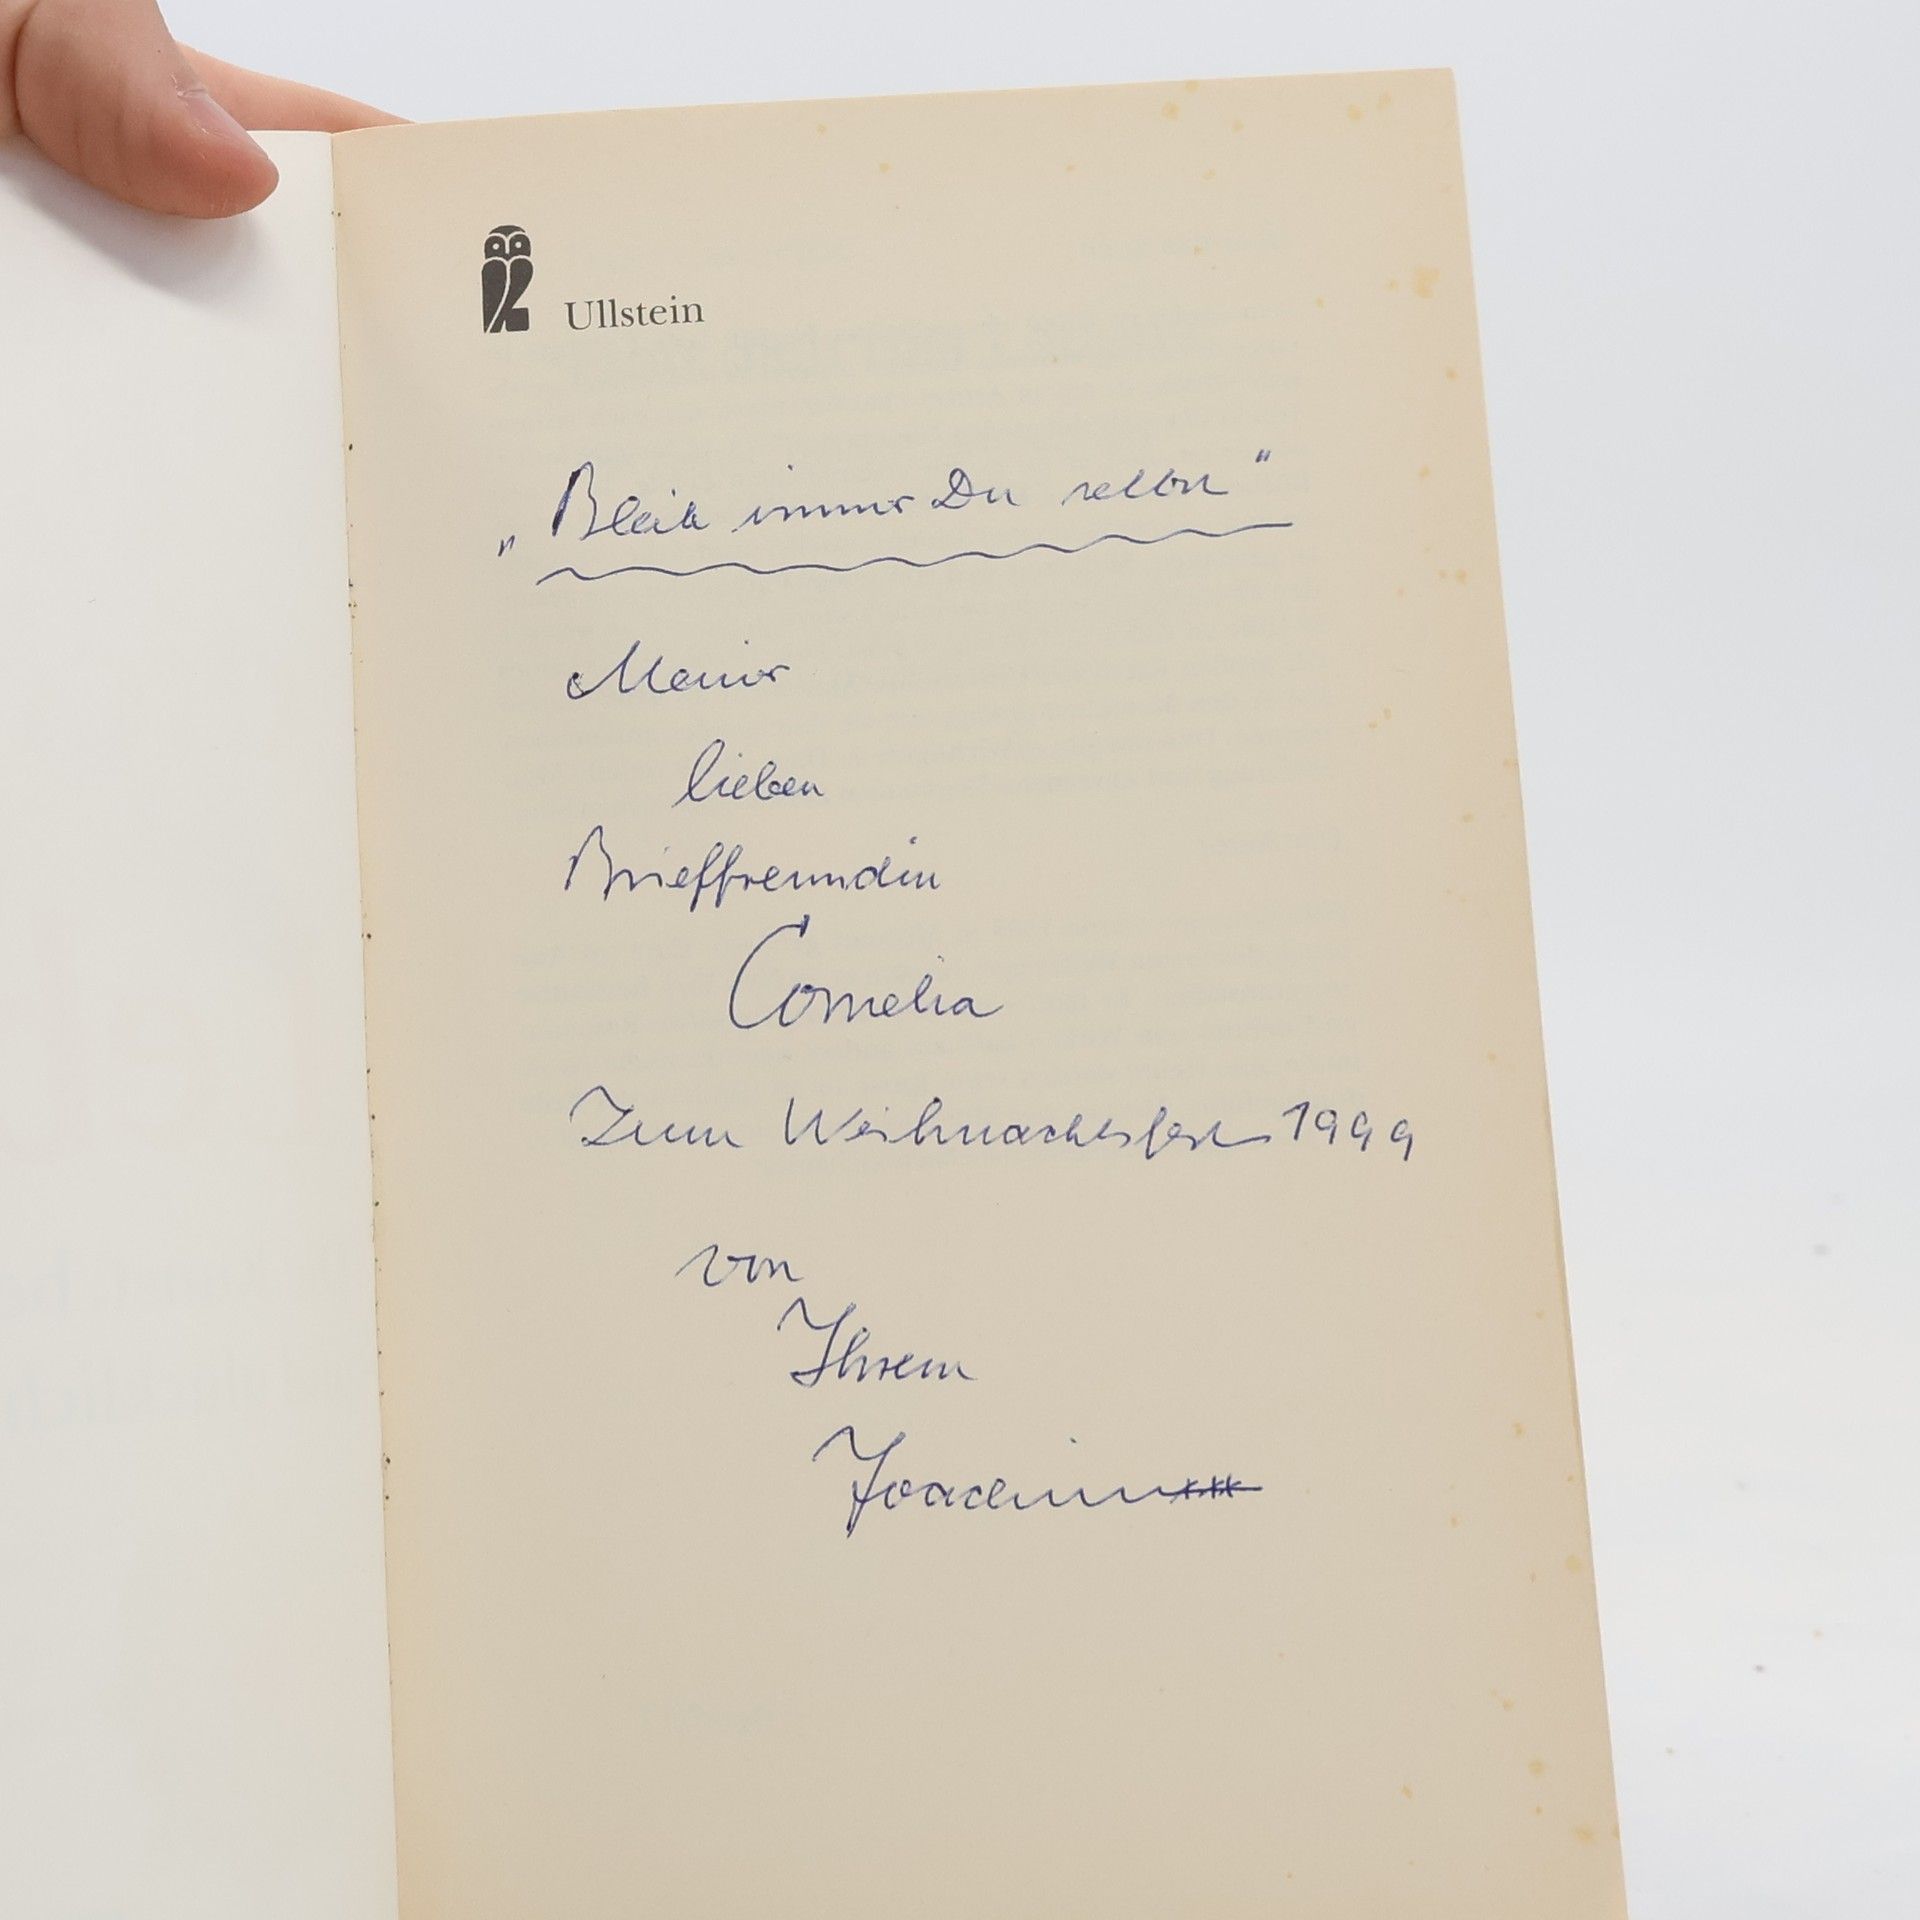 Ullstein
„Bleib immer Du selbst"
Meiner
lieben
Brieffreundin
Cornelia
Zum Weihnachtsfest 1999
von
Ihrem
Joachim